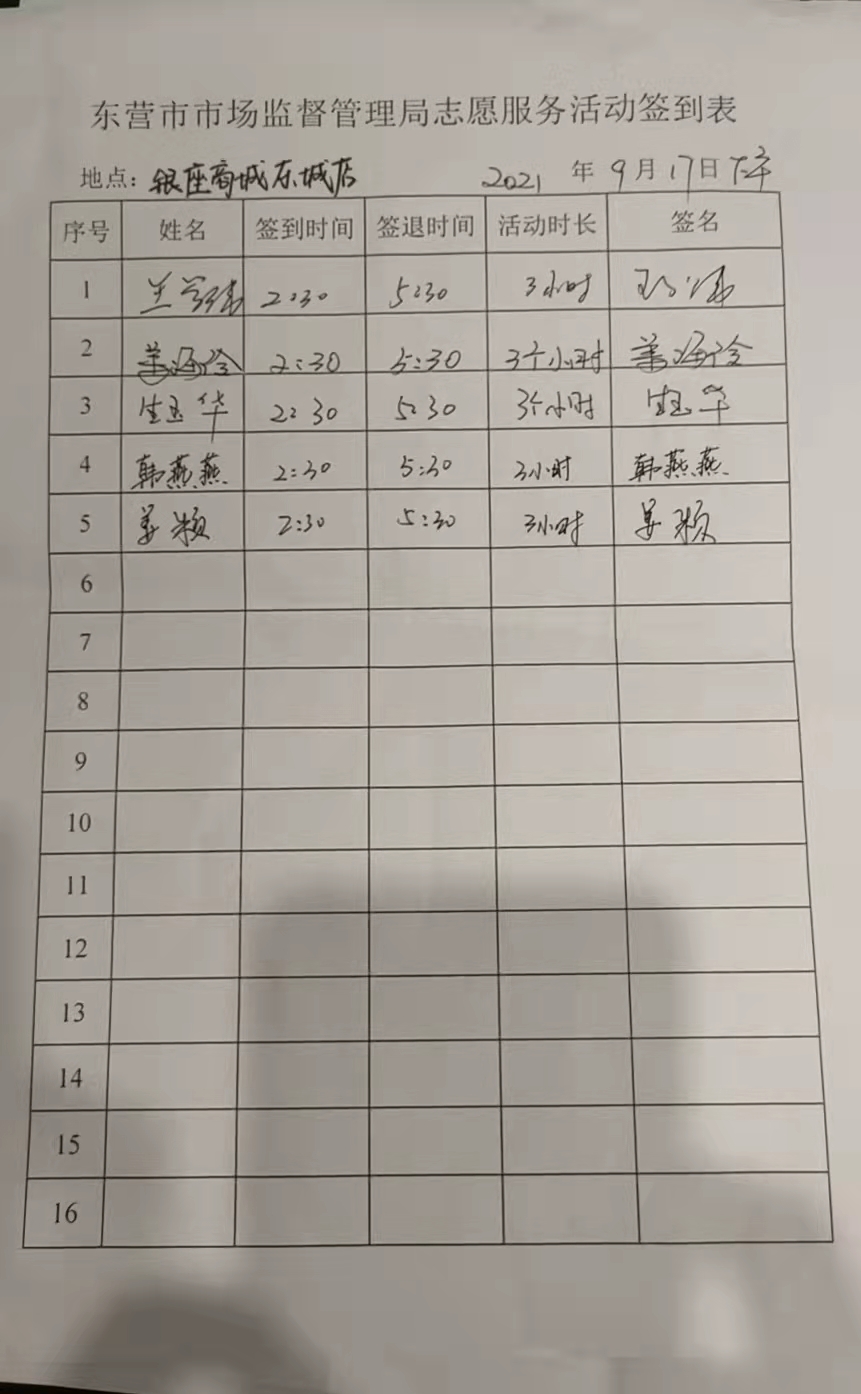 东营市市场监督管理局志愿服务活动签到表
地点：银座商城东城店 2021 年 9 月 17 日 下午
序号 姓名 签到时间 签退时间 活动时长 签名
1 2:30 5:30 3小时
2 2:30 5:30 3个小时
3 生玉华 2:30 5:30 3个小时 生玉华
4 韩燕燕 2:30 5:30 3小时 韩燕燕
5 姜颖 2:30 5:30 3小时 姜颖
6
7
8
9
10
11
12
13
14
15
16